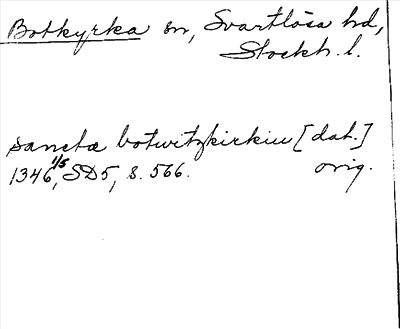 Botkyrka sn, Svartlösa hd,
Stockh. l.
sancta botwitzkirkiu [dat.]
1346 1/5, SD5, s. 566. orig.